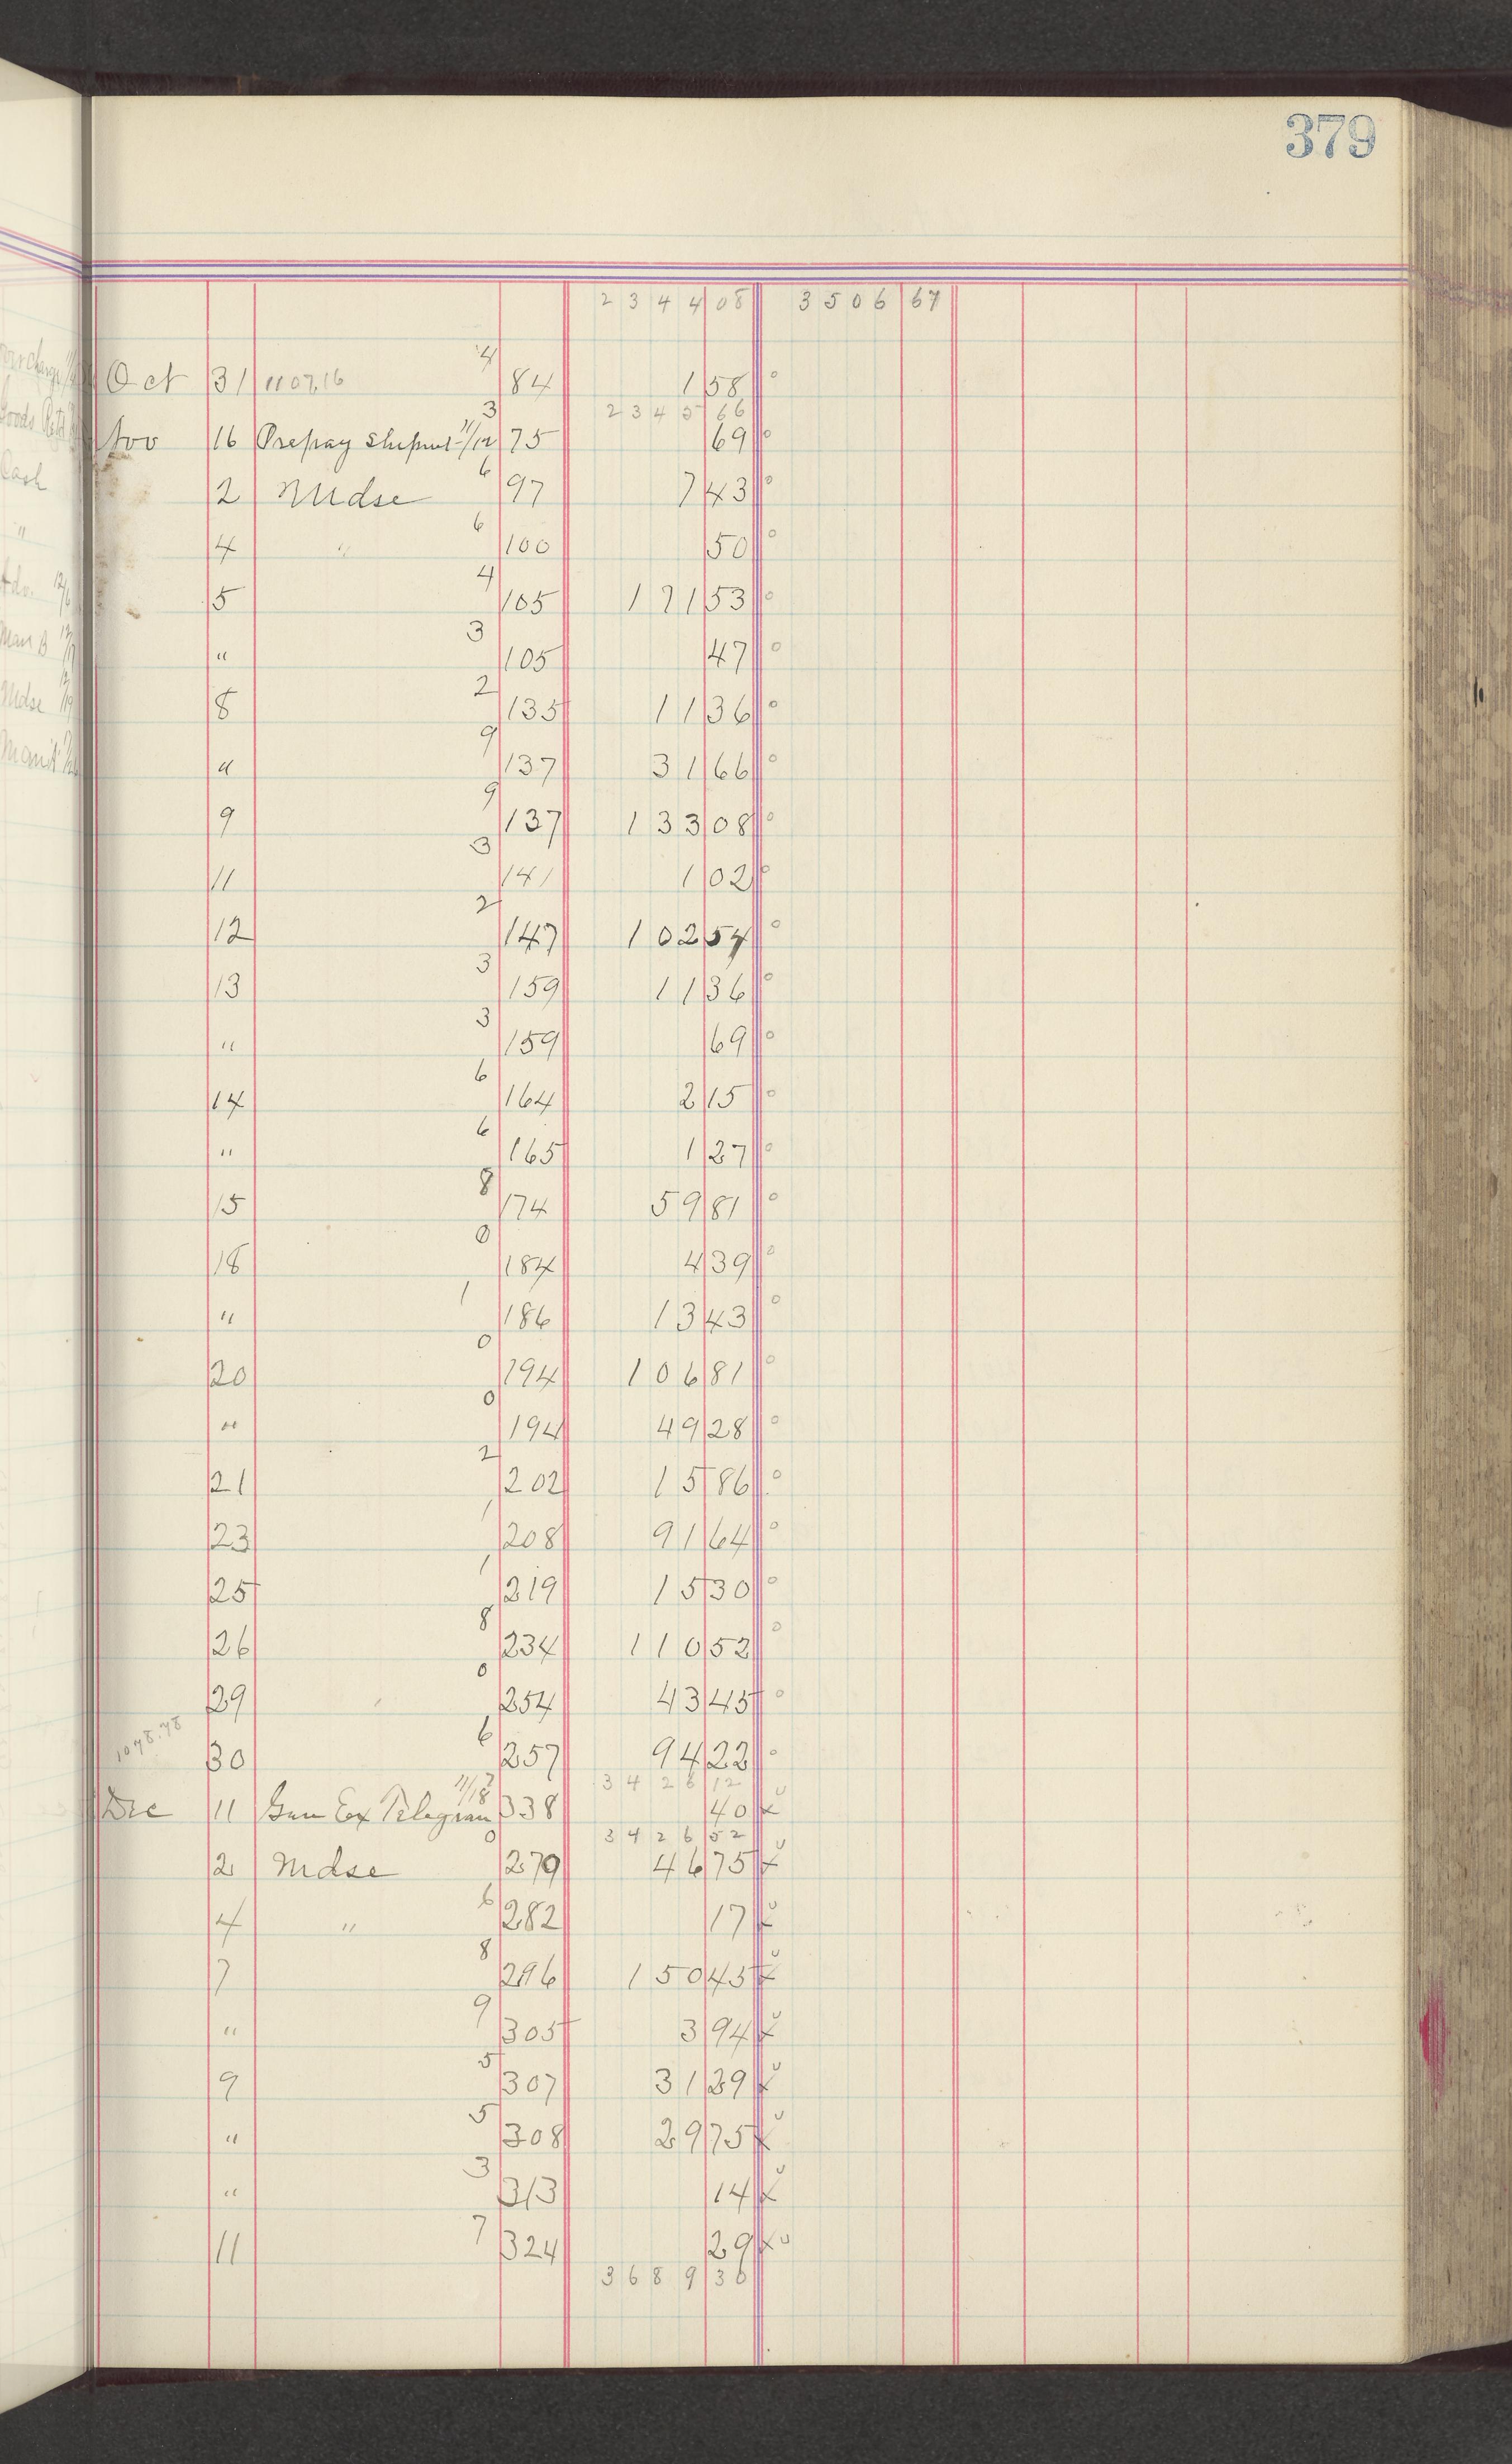 379
2344 08 3506 67
Oct 31 1107.16 4 84 1 58 o
2345 66
Nov 16 Prepay Shipmt 11/12 3 75 69 o
2 Mdse 6 97 7 43 o
4 " 6 100 50 o
5 4 105 171 53 o
" 3 105 47 o
8 2 135 11 36 o
" 9 137 31 66 o
9 9 137 133 08 o
11 3 141 1 02 o
12 2 147 102 54 o
13 3 159 11 36 o
" 3 159 69 o
14 6 164 2 15 o
" 6 165 1 27 o
15 8 174 59 81 o
18 0 184 4 39 o
" 1 186 13 43 o
20 0 194 106 81 o
" 0 194 49 28 o
21 2 202 15 86 o
23 1 208 91 64 o
25 1 219 15 30 o
26 8 234 110 52 o
29 0 254 43 45 o
1078.78 30 6 257 94 22 o
3426 12
Dec 11 Gen Ex Telegram 11/18 338 40 x
3426 52
2 Mdse 0 279 46 75 x
4 " 6 282 17 x
7 8 296 150 45 x
" 9 305 3 94 x
9 5 307 31 29 x
" 5 308 29 75 x
" 3 313 14 x
11 7 324 29 x
3689 30
Goods
Cash
"
Adv. 12/6
Man B
Mdse 12/19